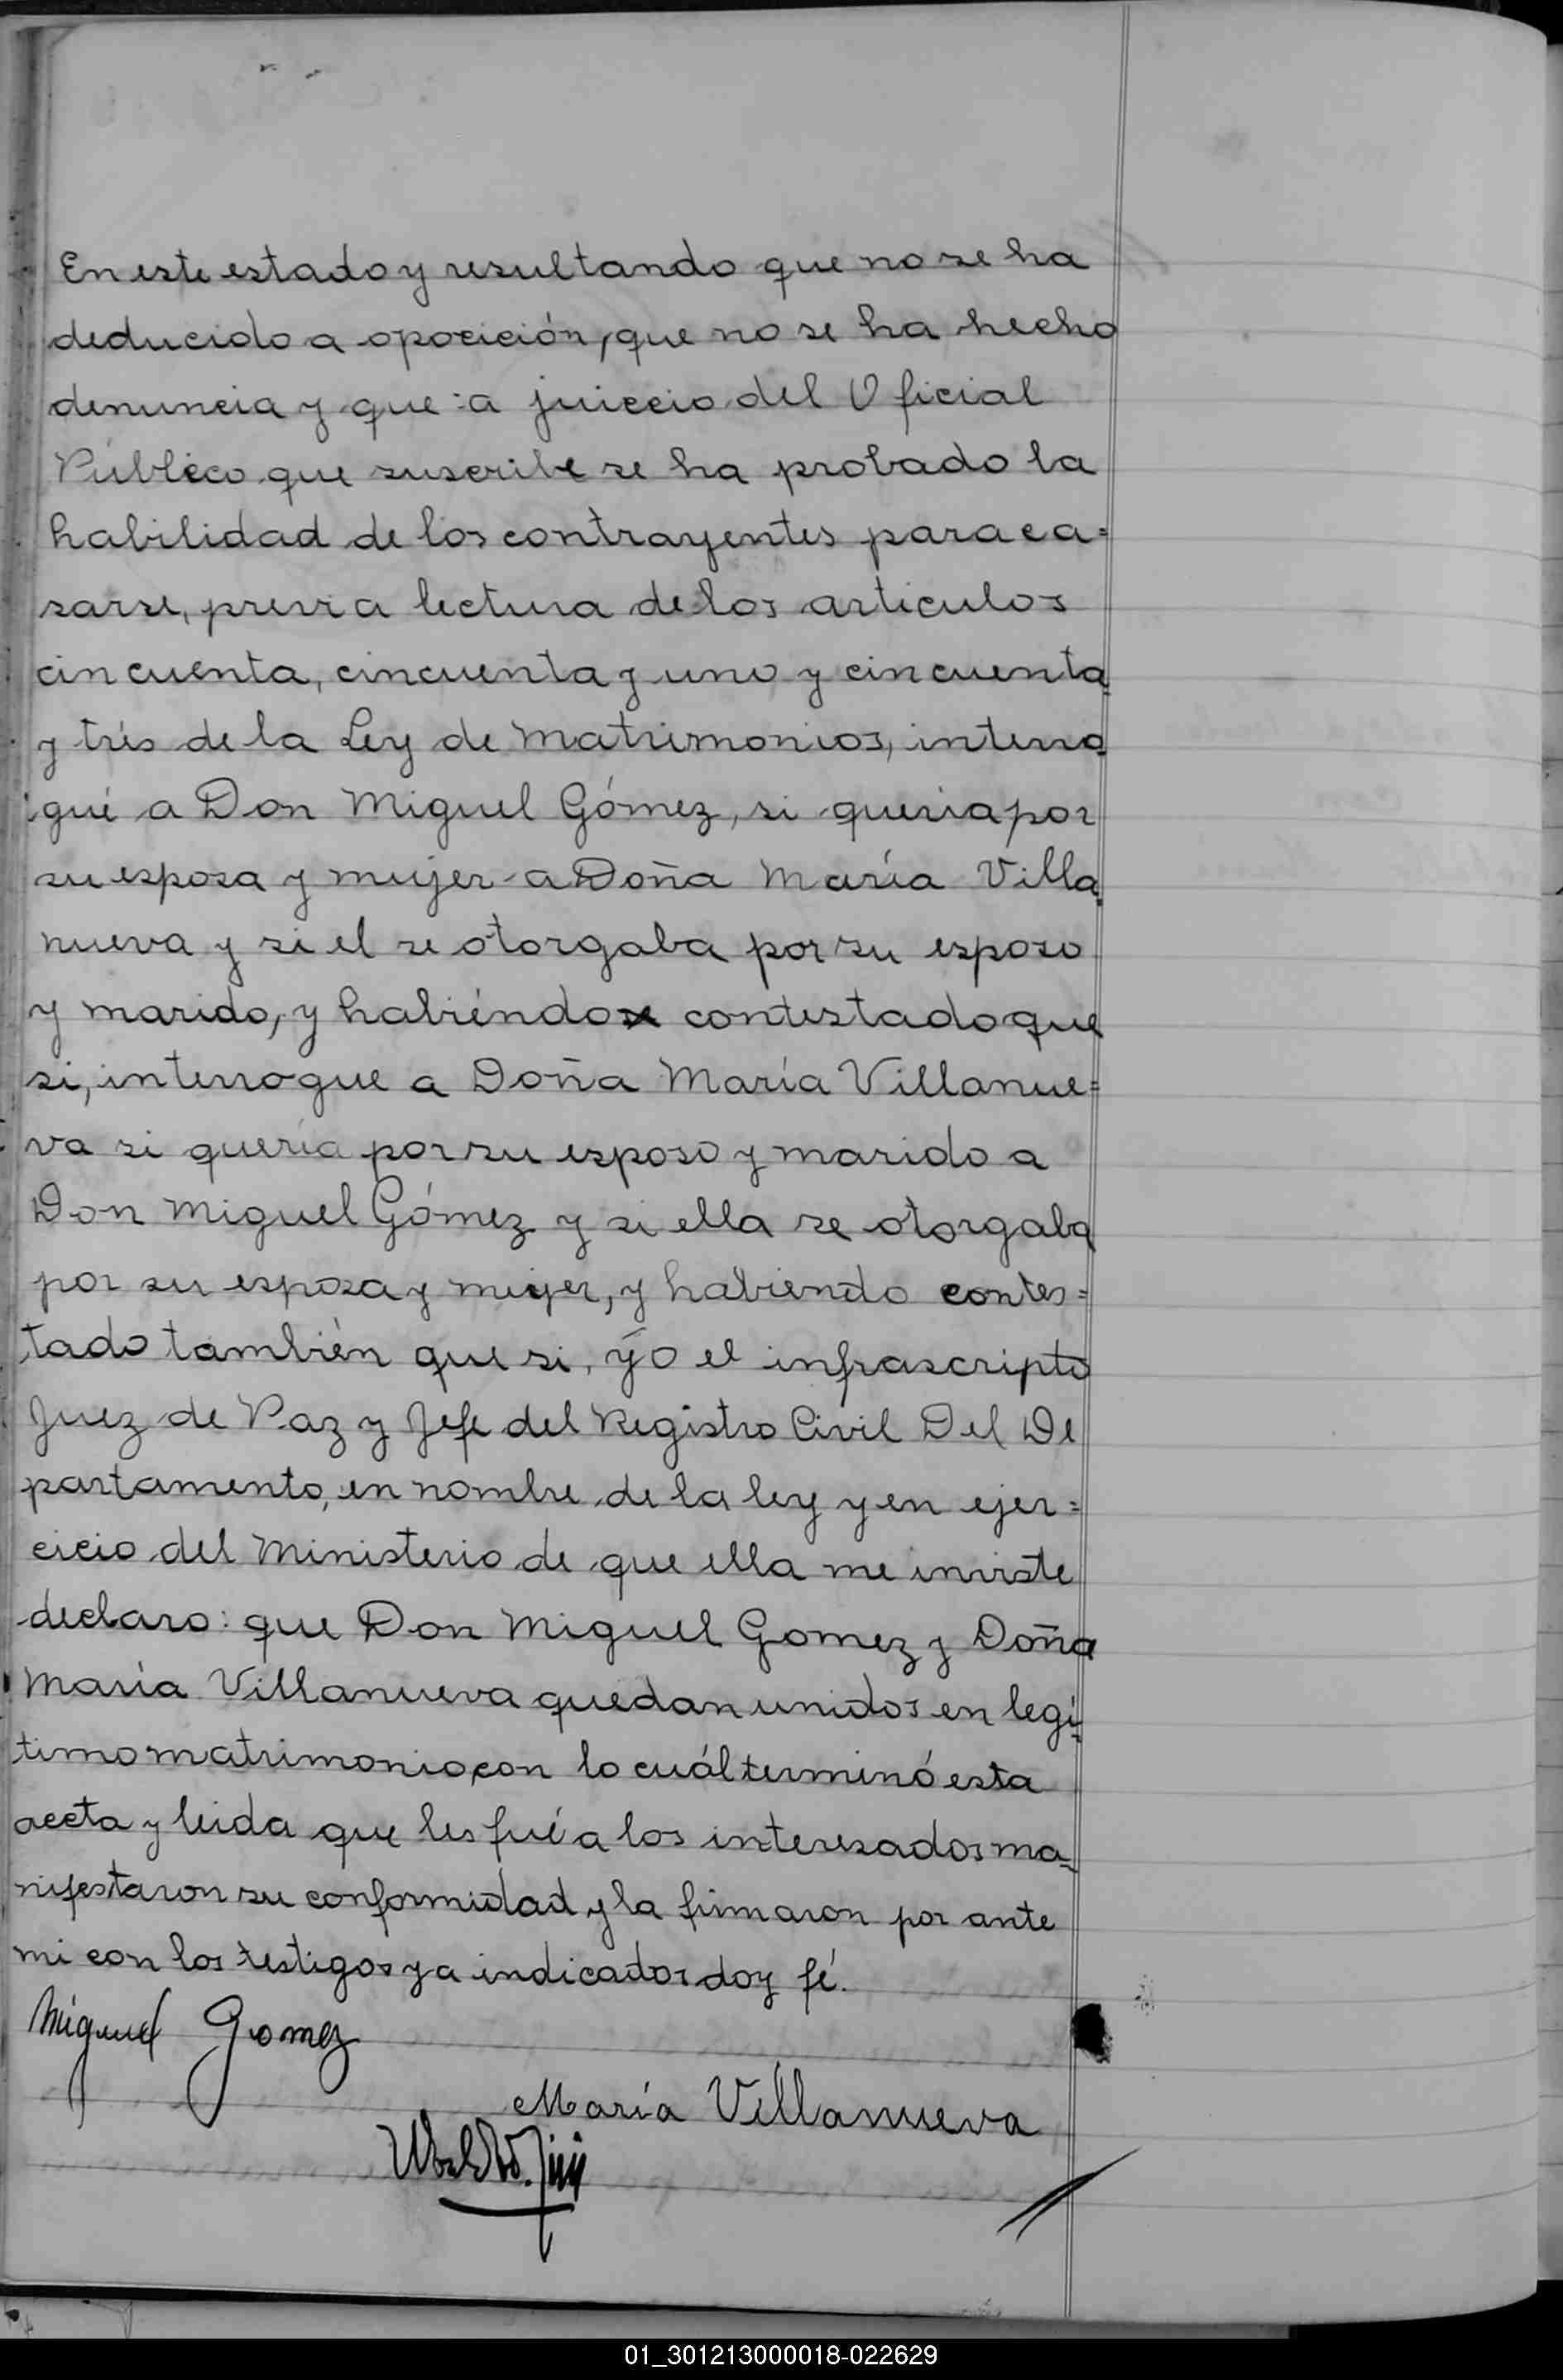 En este estado y resultando que no se ha
deducido a oposición, que no se ha hecho
denuncia y que a juiccio del Oficial
Público que suscribe se ha probado la
habilidad de los contrayentes para ca=
sarse, previa lectura de los articulos
cincuenta, cincuenta y uno y cincuenta
y trés de la Ley de Matrimonios, interro
gué a Don Miguel Gómez, si queria por
su esposa y mujer a Doña María Villa
nueva y si el se otorgaba por su esposo
y marido, y habiéndose contestado que
si, interrogue a Doña María Villanue=
va si quería por su esposo y marido a
Don Miguel Gómez y si ella se otorgaba
por su esposa y mujer, y habiendo contes=
tado también que si, yo el infrascripto
Juez de Paz y Jefe del Registro Civil Del De
partamento, en nombre de la ley y en ejer=
cicio del Ministerio de que ella me inviste
declaro: que Don Miguel Gomez y Doña
María Villanueva quedan unidos en legi
timo matrimonio, con lo cuál terminó esta
accta y leida que les fué a los interesados ma-
nifestaron su conformidad y la firmaron por ante
mi con los testigos ya indicados doy fé.
Miguel Gomez
María Villanueva
01_301213000018-022629